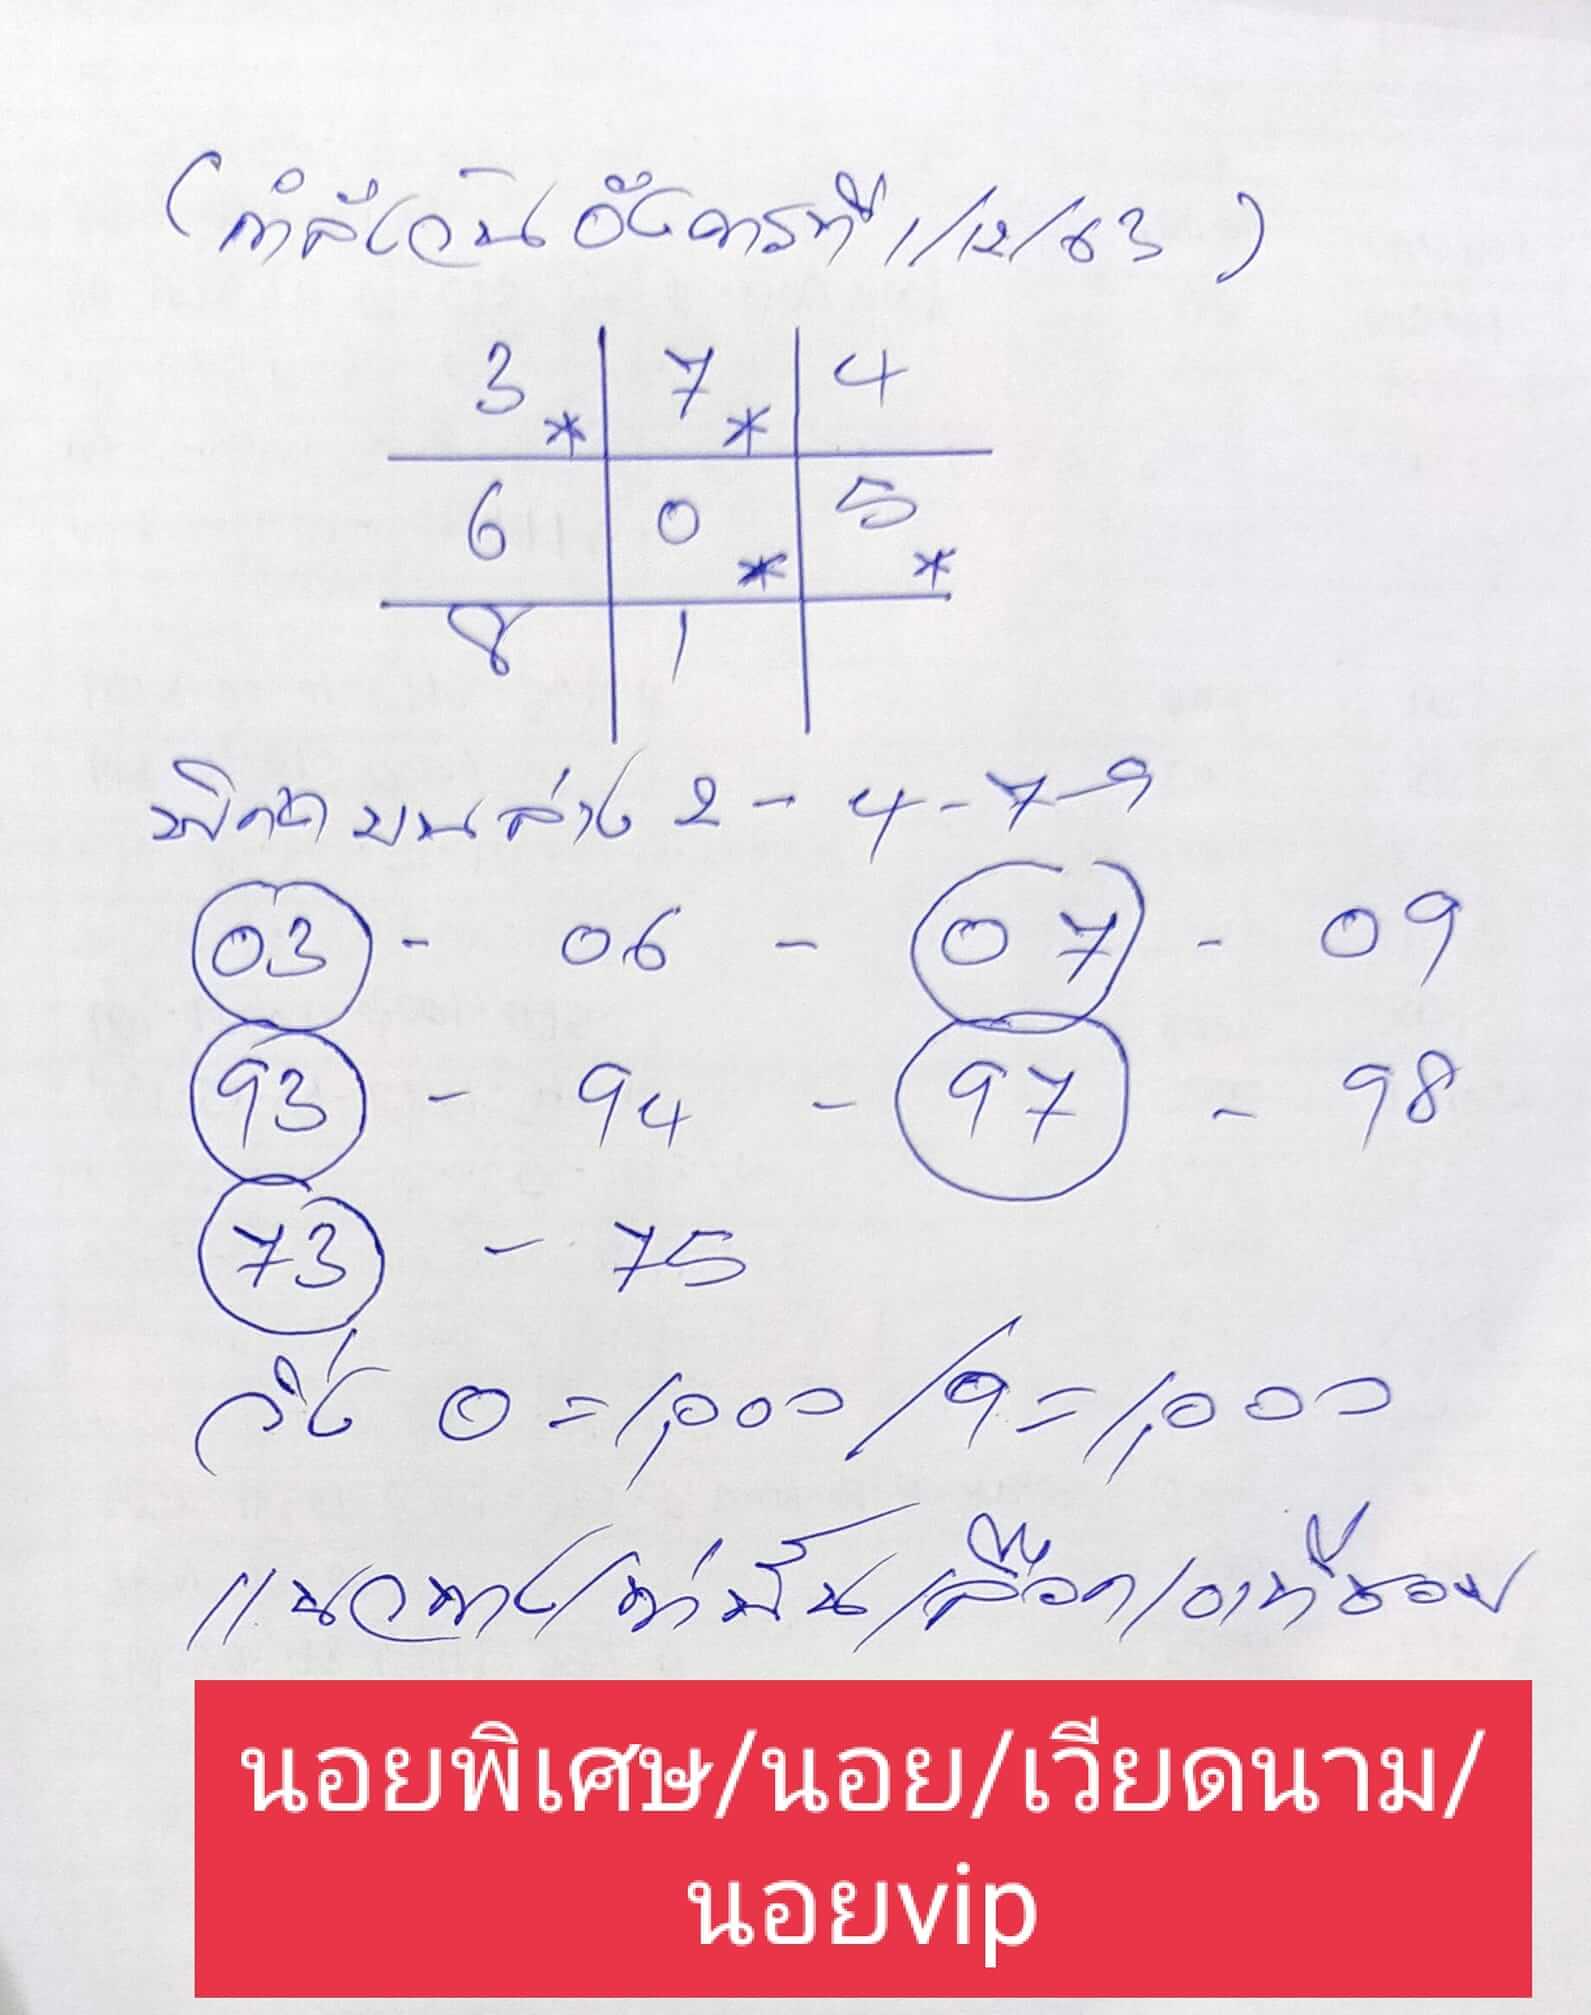 (กำลังวันอังคารที่ 1/12/63)
3* 7* 4
6 0* 5*
8 1
พิกัด บนล่าง 2 - 4 - 7 - 9
03 - 06 - 07 - 09
93 - 94 - 97 - 98
73 - 75
วิ่ง 0 = 1,000 / 9 = 1,000
แนวทางเท่านั้นเลือกเอาที่ชอบ
นอยพิเศษ/นอย/เวียดนาม/
นอยvip